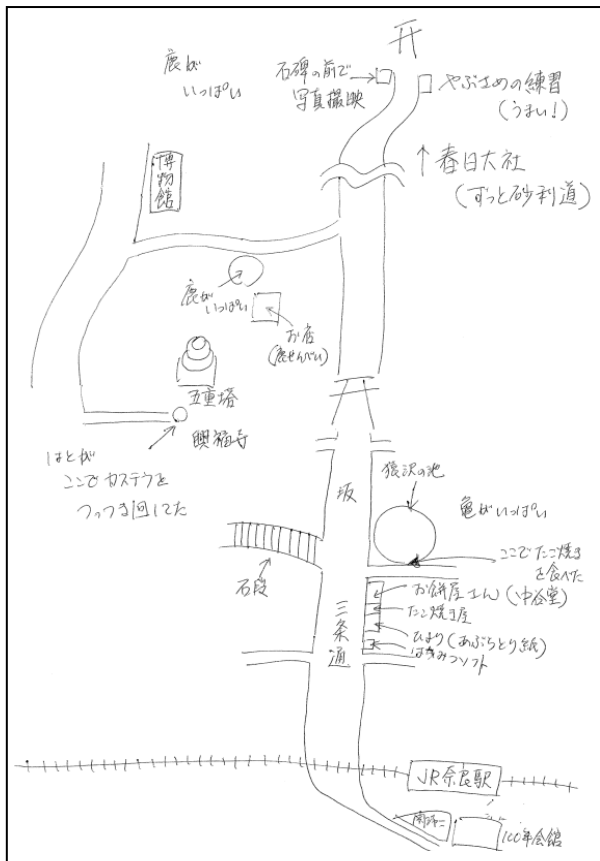 鹿が
いっぱい
石碑の前で
写真撮映
やぶさめの練習
(うまい!)
↑春日大社
(ずっと砂利道)
博物館
鹿が
いっぱい
お店
(鹿せんべい)
五重塔
興福寺
はとが
ここでカステラを
つっつき回してた
坂
猿沢の池
亀がいっぱい
ここでたこ焼き
を食べた
石段
お餅屋さん(中谷堂)
たこ焼き屋
ひより(あぶらとり紙)
はちみつソフト
三条通
JR奈良駅
100年会館